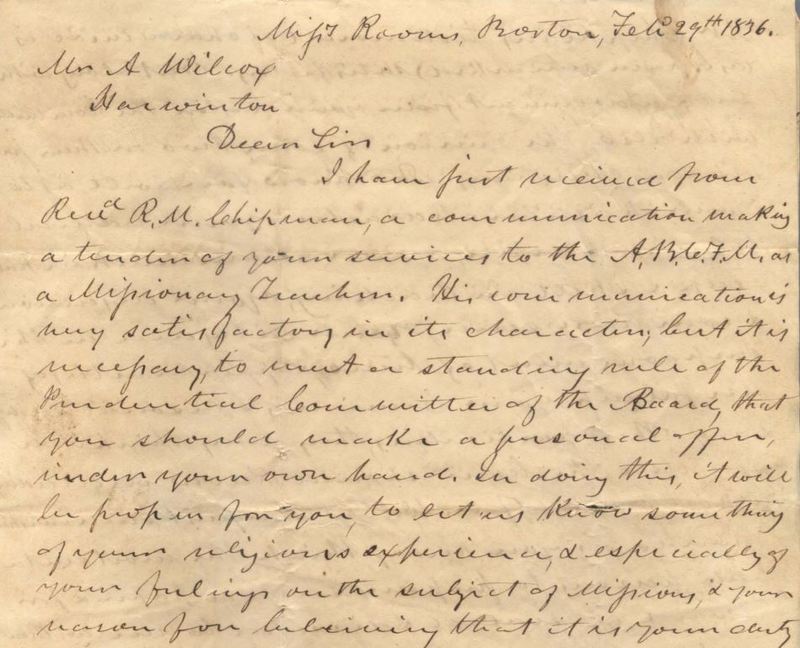 Miss. Rooms, Boston, Feb. 29th 1836.
Mr A Wilcox
Harwinton
Dear Sir
I have just received from
Revd R. M. Chipman, a communication making
a tender of your services to the A.B.C.F.M. as
a Missionary Teacher. His communication is
very satisfactory in its character; but it is
necessary, to meet a standing rule of the
Prudential Committee of the Board, that
you should make a personal offer,
under your own hand. In doing this, it will
be proper for you, to let us know something
of your religious experience, & especially of
your feelings on the subject of Missions, & your
reason for beleiving that it is your duty